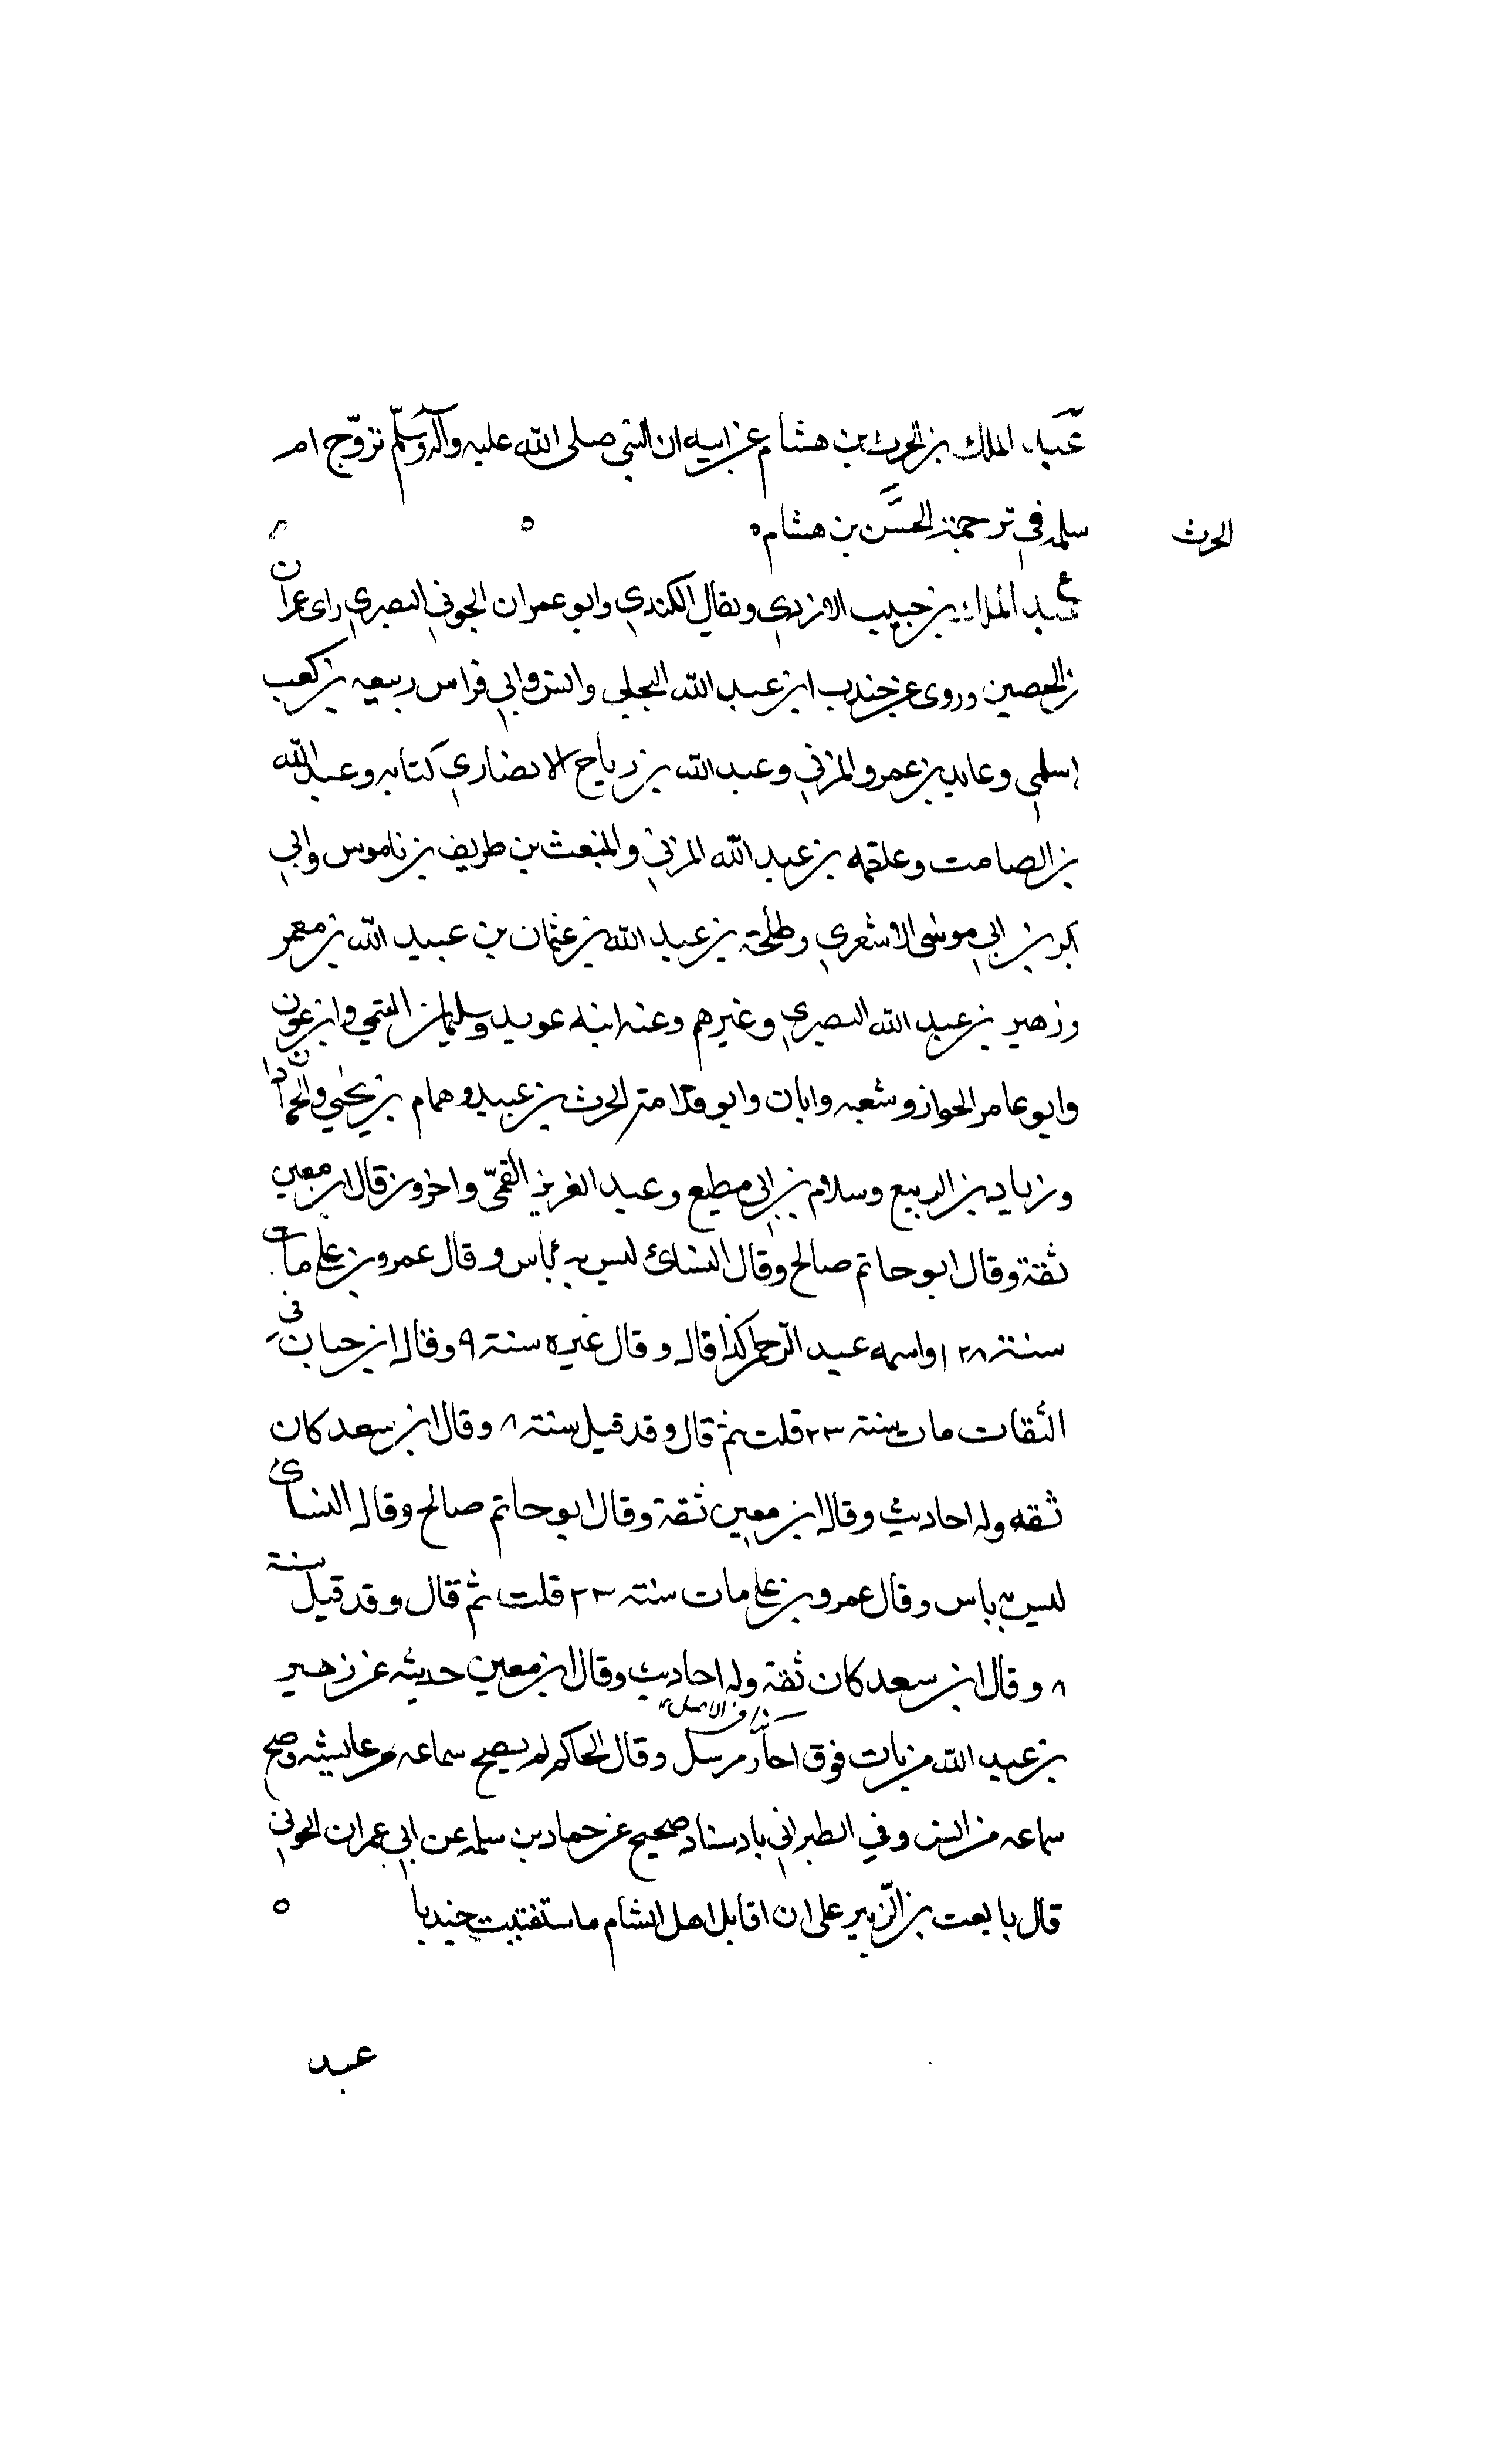 عبد الملك بن الحرث بن هشام عن ابيه ان النبي صلى الله عليه وآله وسلّم تزوّج ام
سلمه في ترجمة الحسَن بن هشام ه ه
الحرث
ع
عبد الملك بن حبيب الازدي ويقال الكندي وابو عمران الجوني البصري راى عمران
بن الحصين وروى عن جندب ابن عبد الله البجلي وانس وابي فراس ربيعه بن كعب
اسلمي وعايد بن عمرو المزني وعبد الله بن رباح الانصاري كتابه وعبد الله
بن الصامت وعلقمه بن عبد الله المزني والمنبعث بن طريف بن ناموس وابي
بكر بن ابي موسى الاشعري وطلحة بن عبد الله بن عثمان بن عبيد الله بن معمر
وزهير بن عبد الله البصري وغيرهم وعنه ابنه عويد وسليمان التيمي وابن عون
وابو عامر الحواز وشعبه وابان وابو قدامة الحرث بن عبيد وهمام بن يحيى والحمادان
وزياد بن الربيع وسلام بن ابي مطيع وعبد العزيز القمّي واخرون قال ابن معين
ثقة وقال ابو حاتم صالح وقال النسائ ليس به بأس وقال عمرو بن علي مات
سنة ١٢٨ واسمه عبد الرحمن كذا قال وقال غيره سنة ٩ وقال ابن حبان في
الثقات مات سنة ٢٣ قلت ثم قال وقد قيل سنة ٨ وقال ابن سعد كان
ثقه وله احاديث وقال ابن معين ثقة وقال ابو حاتم صالح وقال النسائ
ليس به باس وقال عمرو بن علي مات سنة ٢٣ قلت ثم قال وقد قيل سنة
٨ وقال ابن سعد كان ثقة وله احاديث وقال ابن معين حديثه عن زهير
كذا في الاصل
بن عبد الله من بات فوق احار مرسل وقال الحاكم لم يصح سماعه من عايشه وصح
سماعه من انس وفي الطبراني باسناد صحيح عن حماد بن سلمه عن ابي عمران الجوني
قال بايعت بن الزبير على ان اقابل اهل الشام ماستفتيت جندبا ه
عبد